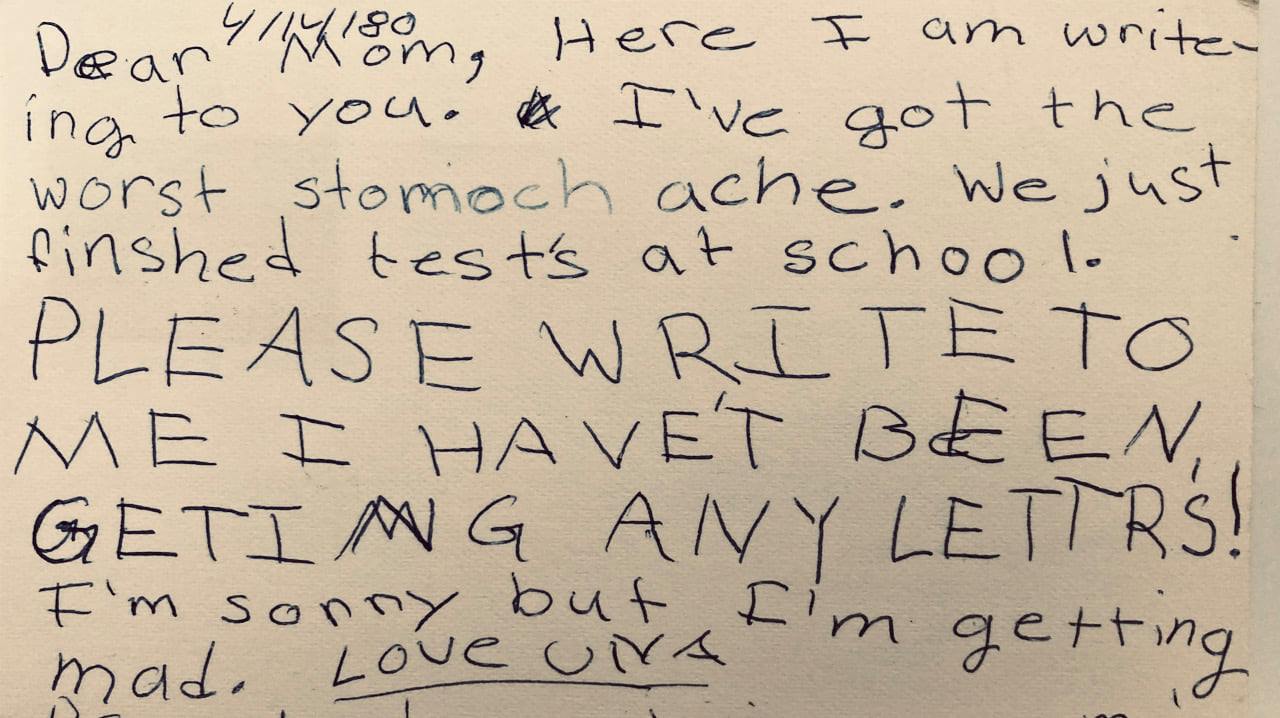 4/14/80
Dear Mom, Here I am write-
ing to you. I've got the
worst stomoch ache. We just
finshed test's at school.
PLEASE WRITE TO
ME I HAVE'T BEEN
GETING ANY LETTRS!
I'm sorry but I'm getting
mad. LOVE